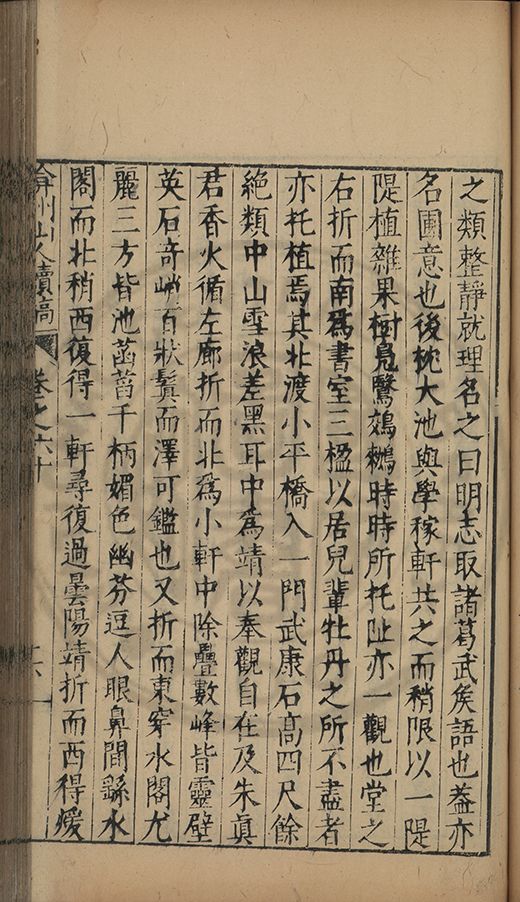 之類整靜就理名之曰明志取諸葛武矦語也葢亦
名圃意也後枕大池與學稼軒共之而稍限以一隄
隄植雜果樹鳧鷖鵁鶄時時所托趾亦一觀也堂之
右折而南爲書室三楹以居兒輩牡丹之所不盡者
亦托植焉其北渡小平橋入一門武康石高四尺餘
絶類中山雪浪差黑耳中爲靖以奉觀自在及朱眞
君香火循左廊折而北爲小軒中除疊數峰皆靈壁
英石奇峭百狀鬒而澤可鑑也又折而東穿水閣尤
麗三方皆池菡萏千柄媚色幽芬逗人眼鼻間繇水
閣而北稍西復得一軒尋復過曇陽靖折而西得煖
弇州山人續稿 卷之六十